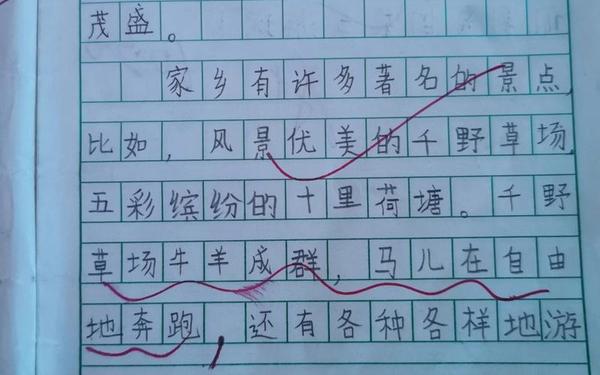 茂盛。
家乡有许多著名的景点,
比如,风景优美的千野草场,
五彩缤纷的十里荷塘。千野
草场牛羊成群,马儿在自由
地奔跑,还有各种各样地游